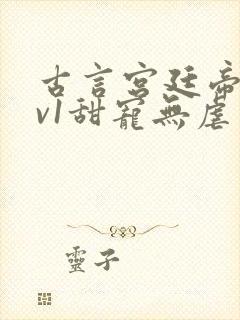 古言宮廷帝
v1甜寵無虐
靈子